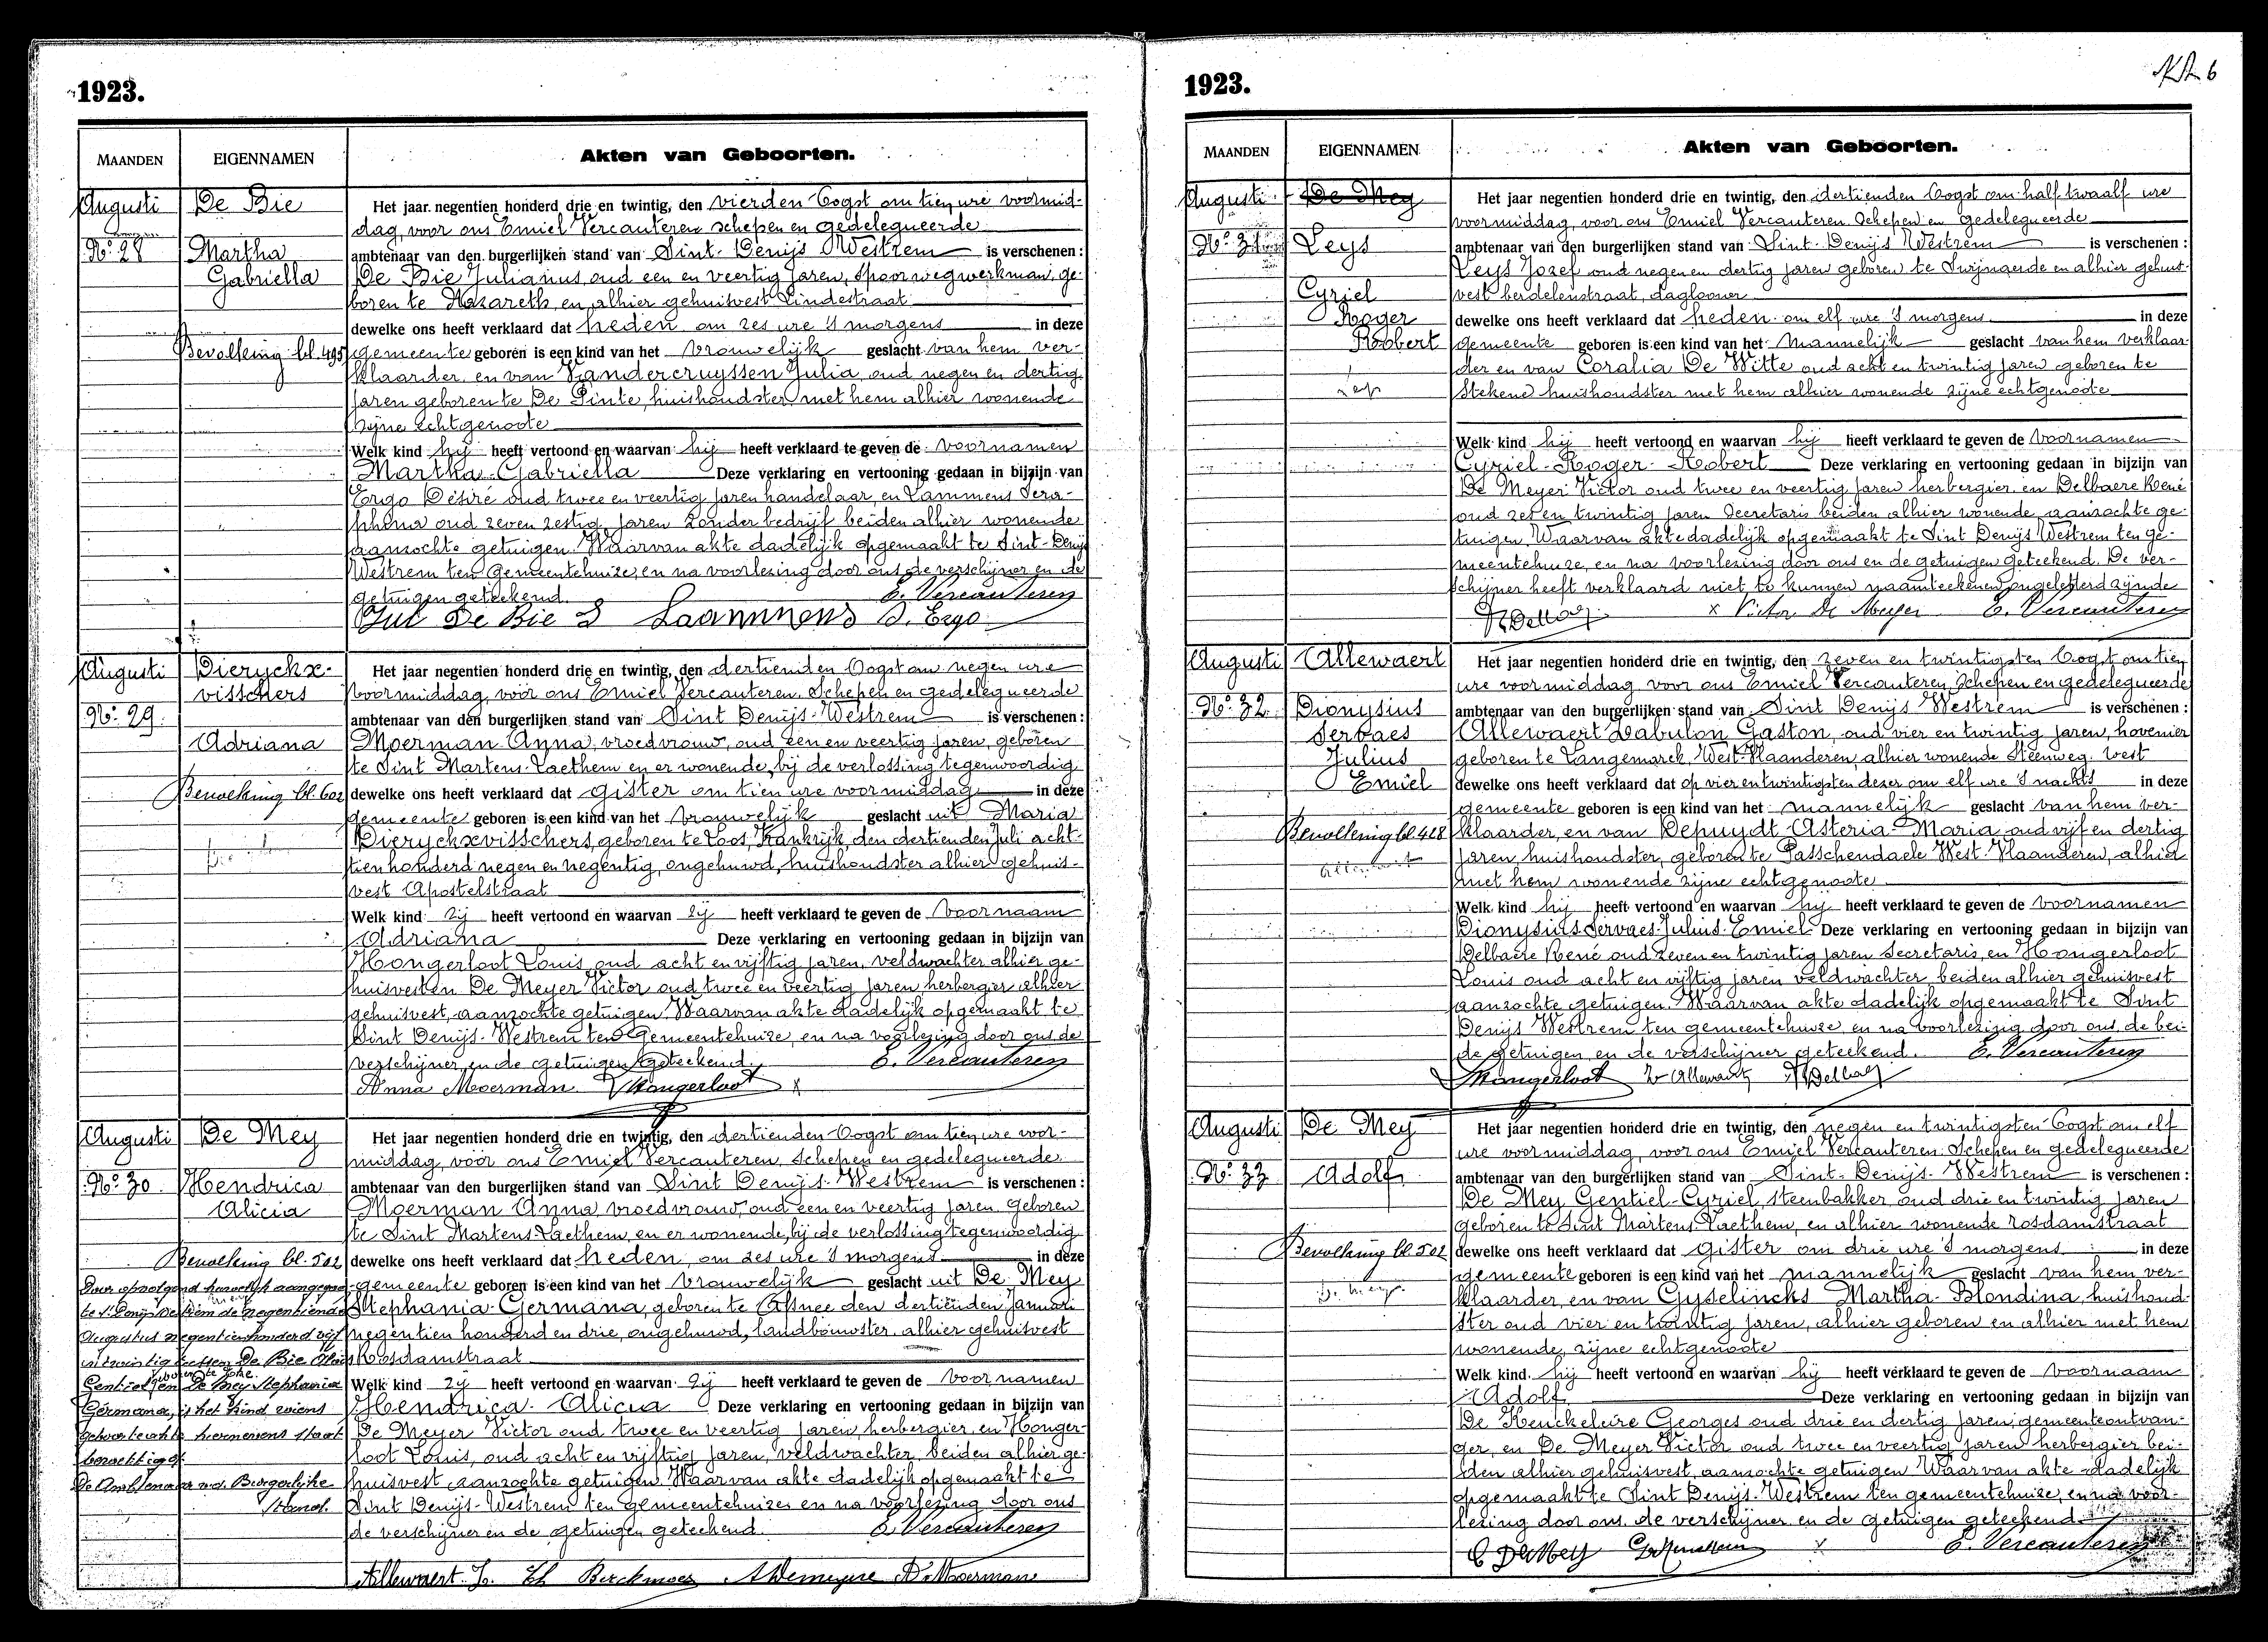 1923.
MAANDEN
EIGENNAMEN
Akten van Geboorten.
Augusti
De Bie
Nº 28
Martha
Gabriella
Bevolking bl. 495
Het jaar negentien honderd drie en twintig, den vierden Oogst om tien ure voormid-
dag, voor ons Emiel Vercauteren schepen en gedelegueerde
ambtenaar van den burgerlijken stand van Sint-Denijs Westrem is verschenen :
De Bie Julianus, oud een en veertig jaren, spoorwegwerkman, ge-
boren te Nazareth, en alhier gehuisvest Lindestraat
dewelke ons heeft verklaard dat heden om zes ure 's morgens in deze
gemeente geboren is een kind van het vrouwelijk geslacht van hem ver-
klaarder, en van Vandercruyssen Julia, oud negen en dertig
jaren geboren te De Pinte, huishoudster, met hem alhier wonende
zijne echtgenoote
Welk kind hij heeft vertoond en waarvan hij heeft verklaard te geven de voornamen
Martha-Gabriella Deze verklaring en vertooning gedaan in bijzijn van
Ergo Désiré oud twee en veertig jaren handelaar, en Lammens Sera-
phena oud zeven zestig jaren zonder bedrijf beiden alhier wonende
aanzochte getuigen. Waarvan akte dadelijk opgemaakt te Sint-Denijs
Westrem ten Gemeentehuize, en na voorlezing door ons de verschijner en de
getuigen geteekend. E. Vercauteren
Jul De Bie S Laammens D. Ergo
Augusti
Dieryckx-
visschers
Nº 29.
Adriana
Bevolking bl. 602
Het jaar negentien honderd drie en twintig, den dertienden Oogst om negen ure
voormiddag, vóór ons Emiel Vercauteren, Schepen en gedelegueerde
ambtenaar van den burgerlijken stand van Sint Denijs-Westrem is verschenen :
Moerman Anna, vroedvrouw, oud een en veertig jaren, geboren
te Sint Martens-Laethem en er wonende, bij de verlossing tegenwoordig
dewelke ons heeft verklaard dat gister om tien ure voormiddag in deze
gemeente geboren is een kind van het vrouwelijk geslacht uit Maria
Dieryckxvisschers, geboren te Loos, Frankrijk, den dertienden Juli acht-
tien honderd negen en negentig, ongehuwd, huishoudster alhier gehuis-
vest Apostelstraat
Welk kind zij heeft vertoond en waarvan zij heeft verklaard te geven de voornaam
Adriana Deze verklaring en vertooning gedaan in bijzijn van
Hongerloot Louis, oud acht en vijftig jaren, veldwachter alhier ge-
huisvest en De Meyer Victor oud twee en veertig jaren herbergier alhier
gehuisvest, aanzochte getuigen. Waarvan akte dadelijk opgemaakt te
Sint Denijs-Westrem ten Gemeentehuize, en na voorlezing door ons de
verschijner en de getuigen geteekend. E. Vercauteren
Anna Moerman. Hongerloot x
Augusti
De Mey
Nº 30.
Hendrica
Alicia
Bevolking bl. 502
Door opvolgend huwelijk aangegaan
te St Denijs Westrem de negentiende
Augustus negentienhonderd vijf
en twintig tusschen De Bie
Gentiel en De Mey Stephania
Germana, is het kind wiens
geboorteakte hiernevens staat
gewettigd
De Ambtenaar v.d. Burgerlijke
Stand.
Het jaar negentien honderd drie en twintig, den dertienden Oogst om tien ure voor-
middag, vóór ons Emiel Vercauteren, Schepen en gedelegueerde
ambtenaar van den burgerlijken stand van Sint Denijs-Westrem is verschenen :
Moerman Anna vroedvrouw, oud een en veertig jaren. Geboren
te Sint Martens-Laethem, en er wonende, bij de verlossing tegenwoordig
dewelke ons heeft verklaard dat heden, om zes ure 's morgens in deze
gemeente geboren is een kind van het vrouwelijk geslacht uit De Mey
Stephania-Germana, geboren te Afsnee den dertienden Januari
negentien honderd en drie, ongehuwd, landbouwster alhier gehuisvest
Rosdamstraat
Welk kind zij heeft vertoond en waarvan zij heeft verklaard te geven de voornamen
Hendrica-Alicia Deze verklaring en vertooning gedaan in bijzijn van
De Meyer Victor oud twee en veertig jaren, herbergier, en Honger-
loot Louis, oud acht en vijftig jaren, veldwachter, beiden alhier ge-
huisvest aanzochte getuigen. Waarvan akte dadelijk opgemaakt te
Sint Denijs-Westrem ten gemeentehuize en na voorlezing door ons
de verschijner en de getuigen geteekend. E. Vercauteren
Allewaert. Berckmoes A Demeyere A. Moerman
1923.
6
MAANDEN
EIGENNAMEN
Akten van Geboorten.
Augusti
De Mey
Nº 31
Leys
Cyriel
Roger
Robert
Het jaar negentien honderd drie en twintig, den dertienden Oogst om half twaalf ure
voormiddag, voor ons Emiel Vercauteren. Schepen en gedelegueerde
ambtenaar van den burgerlijken stand van Sint-Denijs Westrem is verschenen :
Leys Jozef oud negen en dertig jaren geboren te Swijnaerde en alhier gehuis-
vest berdelenstraat, daglooner
dewelke ons heeft verklaard dat heden om elf ure 's morgens in deze
gemeente geboren is een kind van het mannelijk geslacht van hem verklaar-
der en van Coralia De Witte oud acht en twintig jaren geboren te
Stekene huishoudster met hem alhier wonende zijne echtgenoote
Welk kind hij heeft vertoond en waarvan hij heeft verklaard te geven de voornamen
Cyriel-Roger-Robert Deze verklaring en vertooning gedaan in bijzijn van
De Meyer Victor oud twee en veertig jaren herbergier en Delbaere René
oud zes en twintig jaren Secretaris beiden alhier wonende, aanzochte ge-
tuigen. Waarvan akte dadelijk opgemaakt te Sint Denijs Westrem ten ge-
meentehuize, en na voorlezing door ons en de getuigen geteekend. De ver-
schijner heeft verklaard niet te kunnen naamteekenen, ongeletterd zijnde
x Victor De Meyer E. Vercauteren
Augusti
Allewaert
Nº 32.
Dionysius
Servaes
Julius
Emiel
Bevolking bl. 428
Het jaar negentien honderd drie en twintig, den zeven en twintigsten Oogst om tien
ure voormiddag voor ons Emiel Vercauteren, Schepen en gedelegueerde
ambtenaar van den burgerlijken stand van Sint Denijs Westrem is verschenen :
Allewaert Zabulon Gaston, oud vier en twintig jaren, hovenier
geboren te Langemarck, West-Vlaanderen, alhier wonende Steenweg. West
dewelke ons heeft verklaard dat op vier en twintigsten dezer om elf ure 's nachts in deze
gemeente geboren is een kind van het mannelijk geslacht van hem ver-
klaarder, en van Depuydt Asteria-Maria oud vijf en dertig
jaren, huishoudster, geboren te Passchendaele West-Vlaanderen, alhier
met hem wonende zijne echtgenoote
Welk kind hij heeft vertoond en waarvan hij heeft verklaard te geven de voornamen
Dionysius Servaes-Julius-Emiel Deze verklaring en vertooning gedaan in bijzijn van
Delbaere René oud zeven en twintig jaren Secretaris, en Hongerloot
Louis oud acht en vijftig jaren veldwachter beiden alhier gehuisvest
aanzochte getuigen. Waarvan akte dadelijk opgemaakt te Sint
Denijs Westrem ten gemeentehuize, en na voorlezing door ons, de bei-
de getuigen en de verschijner geteekend. E. Vercauteren
Hongerloot Z Allewaert R Delbaere
Augusti
De Mey
Nº 33
Adolf
Bevolking bl. 502
De Mey
Het jaar negentien honderd drie en twintig, den negen en twintigsten Oogst om elf
ure voormiddag, voor ons Emiel Vercauteren. Schepen en gedelegueerde
ambtenaar van den burgerlijken stand van Sint-Denijs-Westrem is verschenen :
De Mey Gentiel-Cyriel steenbakker, oud drie en twintig jaren
geboren te Sint Martens-Laethem, en alhier wonende rosdamstraat
dewelke ons heeft verklaard dat gister om drie ure 's morgens in deze
gemeente geboren is een kind van het mannelijk geslacht van hem ver-
klaarder, en van Gyselincks Martha-Blondina, huishoud-
ster oud vier en twintig jaren, alhier geboren en alhier met hem
wonende, zijne echtgenoote
Welk kind hij heeft vertoond en waarvan hij heeft verklaard te geven de voornaam
Adolf Deze verklaring en vertooning gedaan in bijzijn van
De Keuckeleire Georges oud drie en dertig jaren, gemeenteontvan-
ger, en De Meyer Victor oud twee en veertig jaren herbergier bei-
den alhier gehuisvest, aanzochte getuigen Waarvan akte dadelijk
opgemaakt te Sint Denijs-Westrem ten gemeentehuize, en na voor-
lezing door ons, de verschijner en de getuigen geteekend.
C DeMey x E. Vercauteren